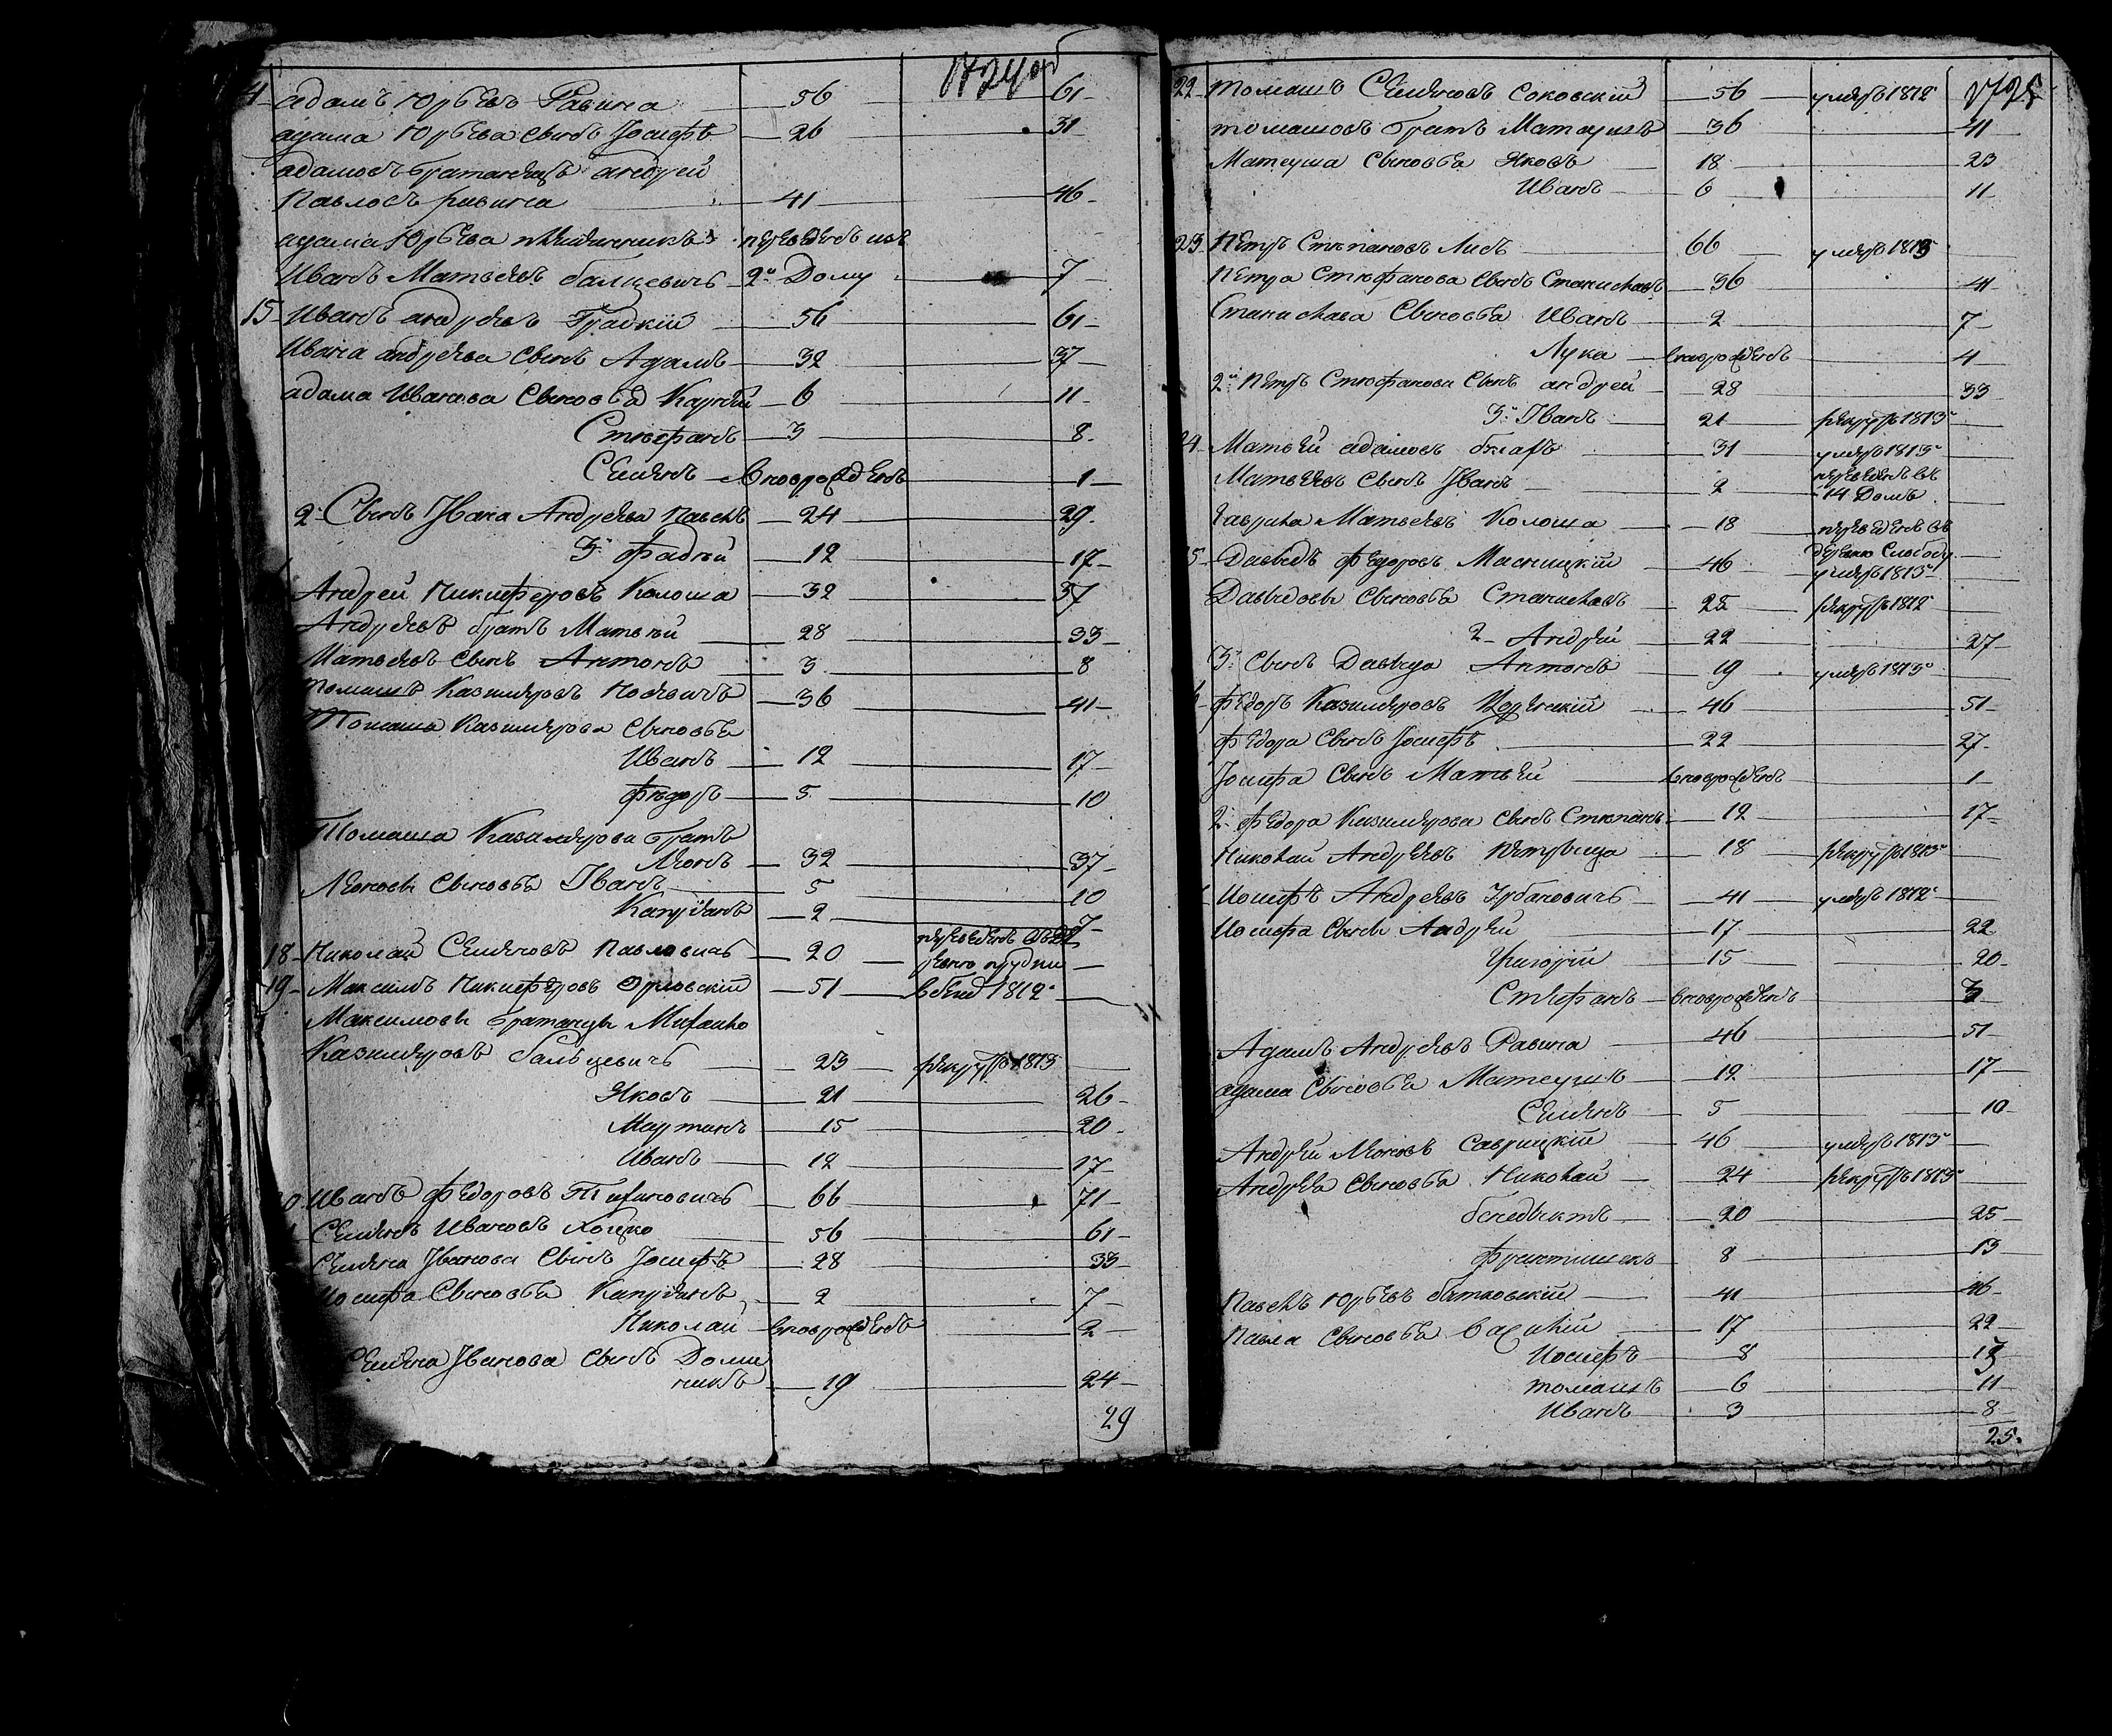 1724 об
4 Адамъ Юрьевъ Равина 56 61
Адама Юрьева сынъ Іосифъ 26 31
Адамовъ братанецъ Андрей
Павловъ Равина 41 46
Адама Юрьева переведенъ изъ
Иванъ Матвѣевъ Балцевичъ 2го Дому 7
15 Иванъ Андрѣевъ 56 61
Ивана Андрѣева сынъ Адамъ 32 37
Адама Иванова сыновья 6 11
Стефанъ 3 8
Семенъ вноврожденъ 1
2й Сынъ Ивана Андрѣева Павелъ 24 29
3й Фадѣй 12 17
Андрей Никифоровъ Колоша 32 37
Андрѣевъ братъ Матвѣй 28 33
Матвѣевъ сынъ Антонъ 3 8
Томашъ Казимѣровъ 36 41
Томаша Казимѣрова сыновья
Иванъ 12 17
Федоръ 5 10
Томаша Казимѣрова братъ
Леонъ 32 37
Леоновы сыновья Иванъ 5 10
Капріанъ 2 7
18 Николай Семеновъ Павловичъ 20 переведенъ въ де
ревню Прудки
19 Максимъ Никифоровъ Орловский 51 вбегѣ 1812
Максимовы братанцы Михайло
Казимѣровъ Бальцевичъ 23 рекрутъ 1813
Яковъ 21 26
Мартинъ 15 20
Иванъ 12 17
Иванъ Федоровъ Тихановичъ 66 71
Семенъ Ивановъ Хоцко 56 61
Семена Иванова сынъ Іосифъ 28 33
Іосифа сыновья Капріанъ 2 7
Николай вноврожденъ 2
Семена Иванова сынъ Доми
никъ 19 24
29
1725
22 Томашъ Семеновъ Соковский 56 умеръ 1812
Томашовъ братъ Матеушъ 36 41
Матеуша сыновья Яковъ 18 23
Иванъ 6 11
23 Петръ Степановъ Лисъ 66 умеръ 1813
Петра Стефанова сынъ Станиславъ 36 41
Станислава сыновья Иванъ 2 7
Лука вноврожденъ 4
2й Петръ Стефанова сынъ Андрей 28 33
3й Иванъ 21 рекрутъ 1813
24 Матвѣй Адамовъ 31 умеръ 1813
Матвѣевъ сынъ Иванъ 2 переведенъ въ
14 Домъ
Гаврила Матвѣевъ Колоша 18 переведенъ въ
деревню Слободу
5 Давыдъ Федоровъ Масницкий 46 умеръ 1813
Давыдовы сыновья Станиславъ 25 рекрутъ 1812
2 Андрей 22 27
3й Сынъ Давыда Антонъ 19 умеръ 1813
Федоръ Казимѣровъ 46 51
Федора сынъ Іосифъ 22 27
Іосифа сынъ Матвѣй вновро­жденъ 1
2 Федора Казимѣрова сынъ Степанъ 12 17
Николай Андрѣевъ Петрвица 18 рекрутъ 1813
Іосифъ Андрѣевъ Урбановичъ 41 умеръ 1812
Іосифа сыны Андрей 17 22
Григорій 15 20
Стефанъ вновро­жденъ 3
Адамъ Андрѣевъ Равина 46 51
Адама сыновья Матеушъ 12 17
Семенъ 5 10
Андрей Леоновъ Саврицкий 46 умеръ 1813
Андрея сыновья Николай 24 рекрутъ 1813
Бенедыктъ 20 25
Францишекъ 8 13
Павелъ Юрьевъ 41 46
Павла сыновья Василий 17 22
Іосифъ 8 13
Томашъ 6 11
Иванъ 3 8
25